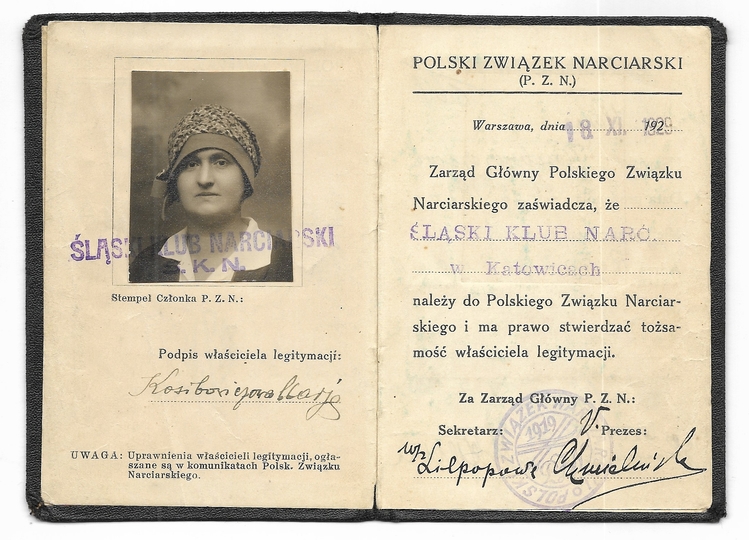 ŚLĄSKI KLUB NARCIARSKI
S. K. N.
Stempel Członka P. Z. N.:
Podpis właściciela legitymacji:
UWAGA: Uprawnienia właścicieli legitymacji, ogła-
szane są w komunikatach Polsk. Związku
Narciarskiego.
POLSKI ZWIĄZEK NARCIARSKI
(P. Z. N.)
Warszawa, dnia 18 XII. 192
Zarząd Główny Polskiego Związku
Narciarskiego zaświadcza, że
ŚLĄSKI KLUB NARC.
w Katowicach
należy do Polskiego Związku Narciar-
skiego i ma prawo stwierdzać tożsa-
mość właściciela legitymacji.
Za Zarząd Główny P. Z. N.:
Sekretarz: V. Prezes:
Lilpopowa Chmieliński
1919